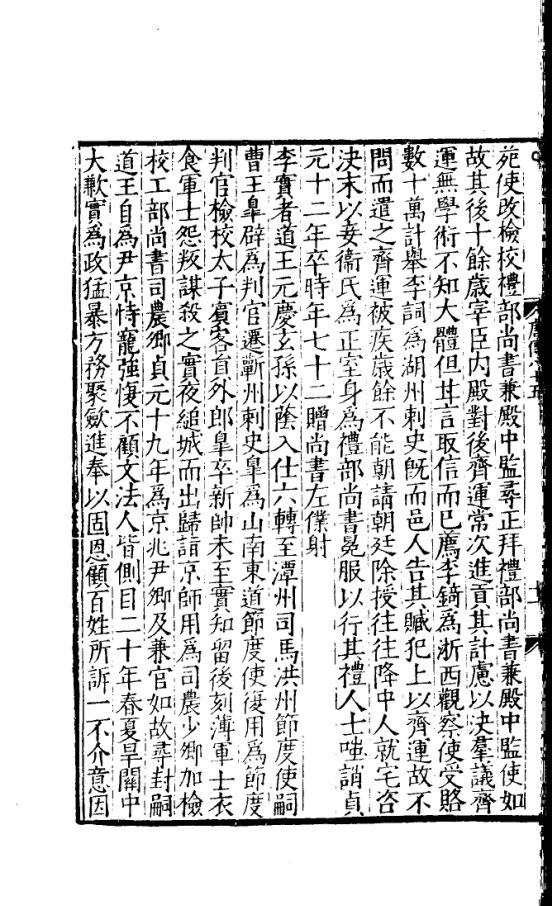 苑使改檢校禮部尚書兼殿中監尋正拜禮部尚書兼殿中監使如
故其後十餘歲宰臣内殿對後齊運常次進貢其計慮以決羣議齊
運無學術不知大體但甘言取信而已薦李錡爲浙西觀察使受賂
數十萬計舉李詞爲湖州刺史旣而邑人告其贓犯上以齊運故不
問而遣之齊運被疾歲餘不能朝請朝廷除授往往降中人就宅咨
決末以妾衞氏爲正室身爲禮部尚書冕服以行其禮人士嗤誚貞
元十二年卒時年七十二贈尚書左僕射
李實者道王元慶玄孫以蔭入仕六轉至潭州司馬洪州節度使嗣
曹王臯辟爲判官遷蘄州刺史臯爲山南東道節度使復用爲節度
判官檢校太子賓客員外郎臯卒新帥未至實知留後刻薄軍士衣
食軍士怨叛謀殺之實夜縋城而出歸詣京師用爲司農少卿加檢
校工部尚書司農卿貞元十九年爲京兆尹卿及兼官如故尋封嗣
道王自爲尹京恃寵強愎不顧文法人皆側目二十年春夏旱關中
大歉實爲政猛暴方務聚斂進奉以固恩顧百姓所訴一不介意因